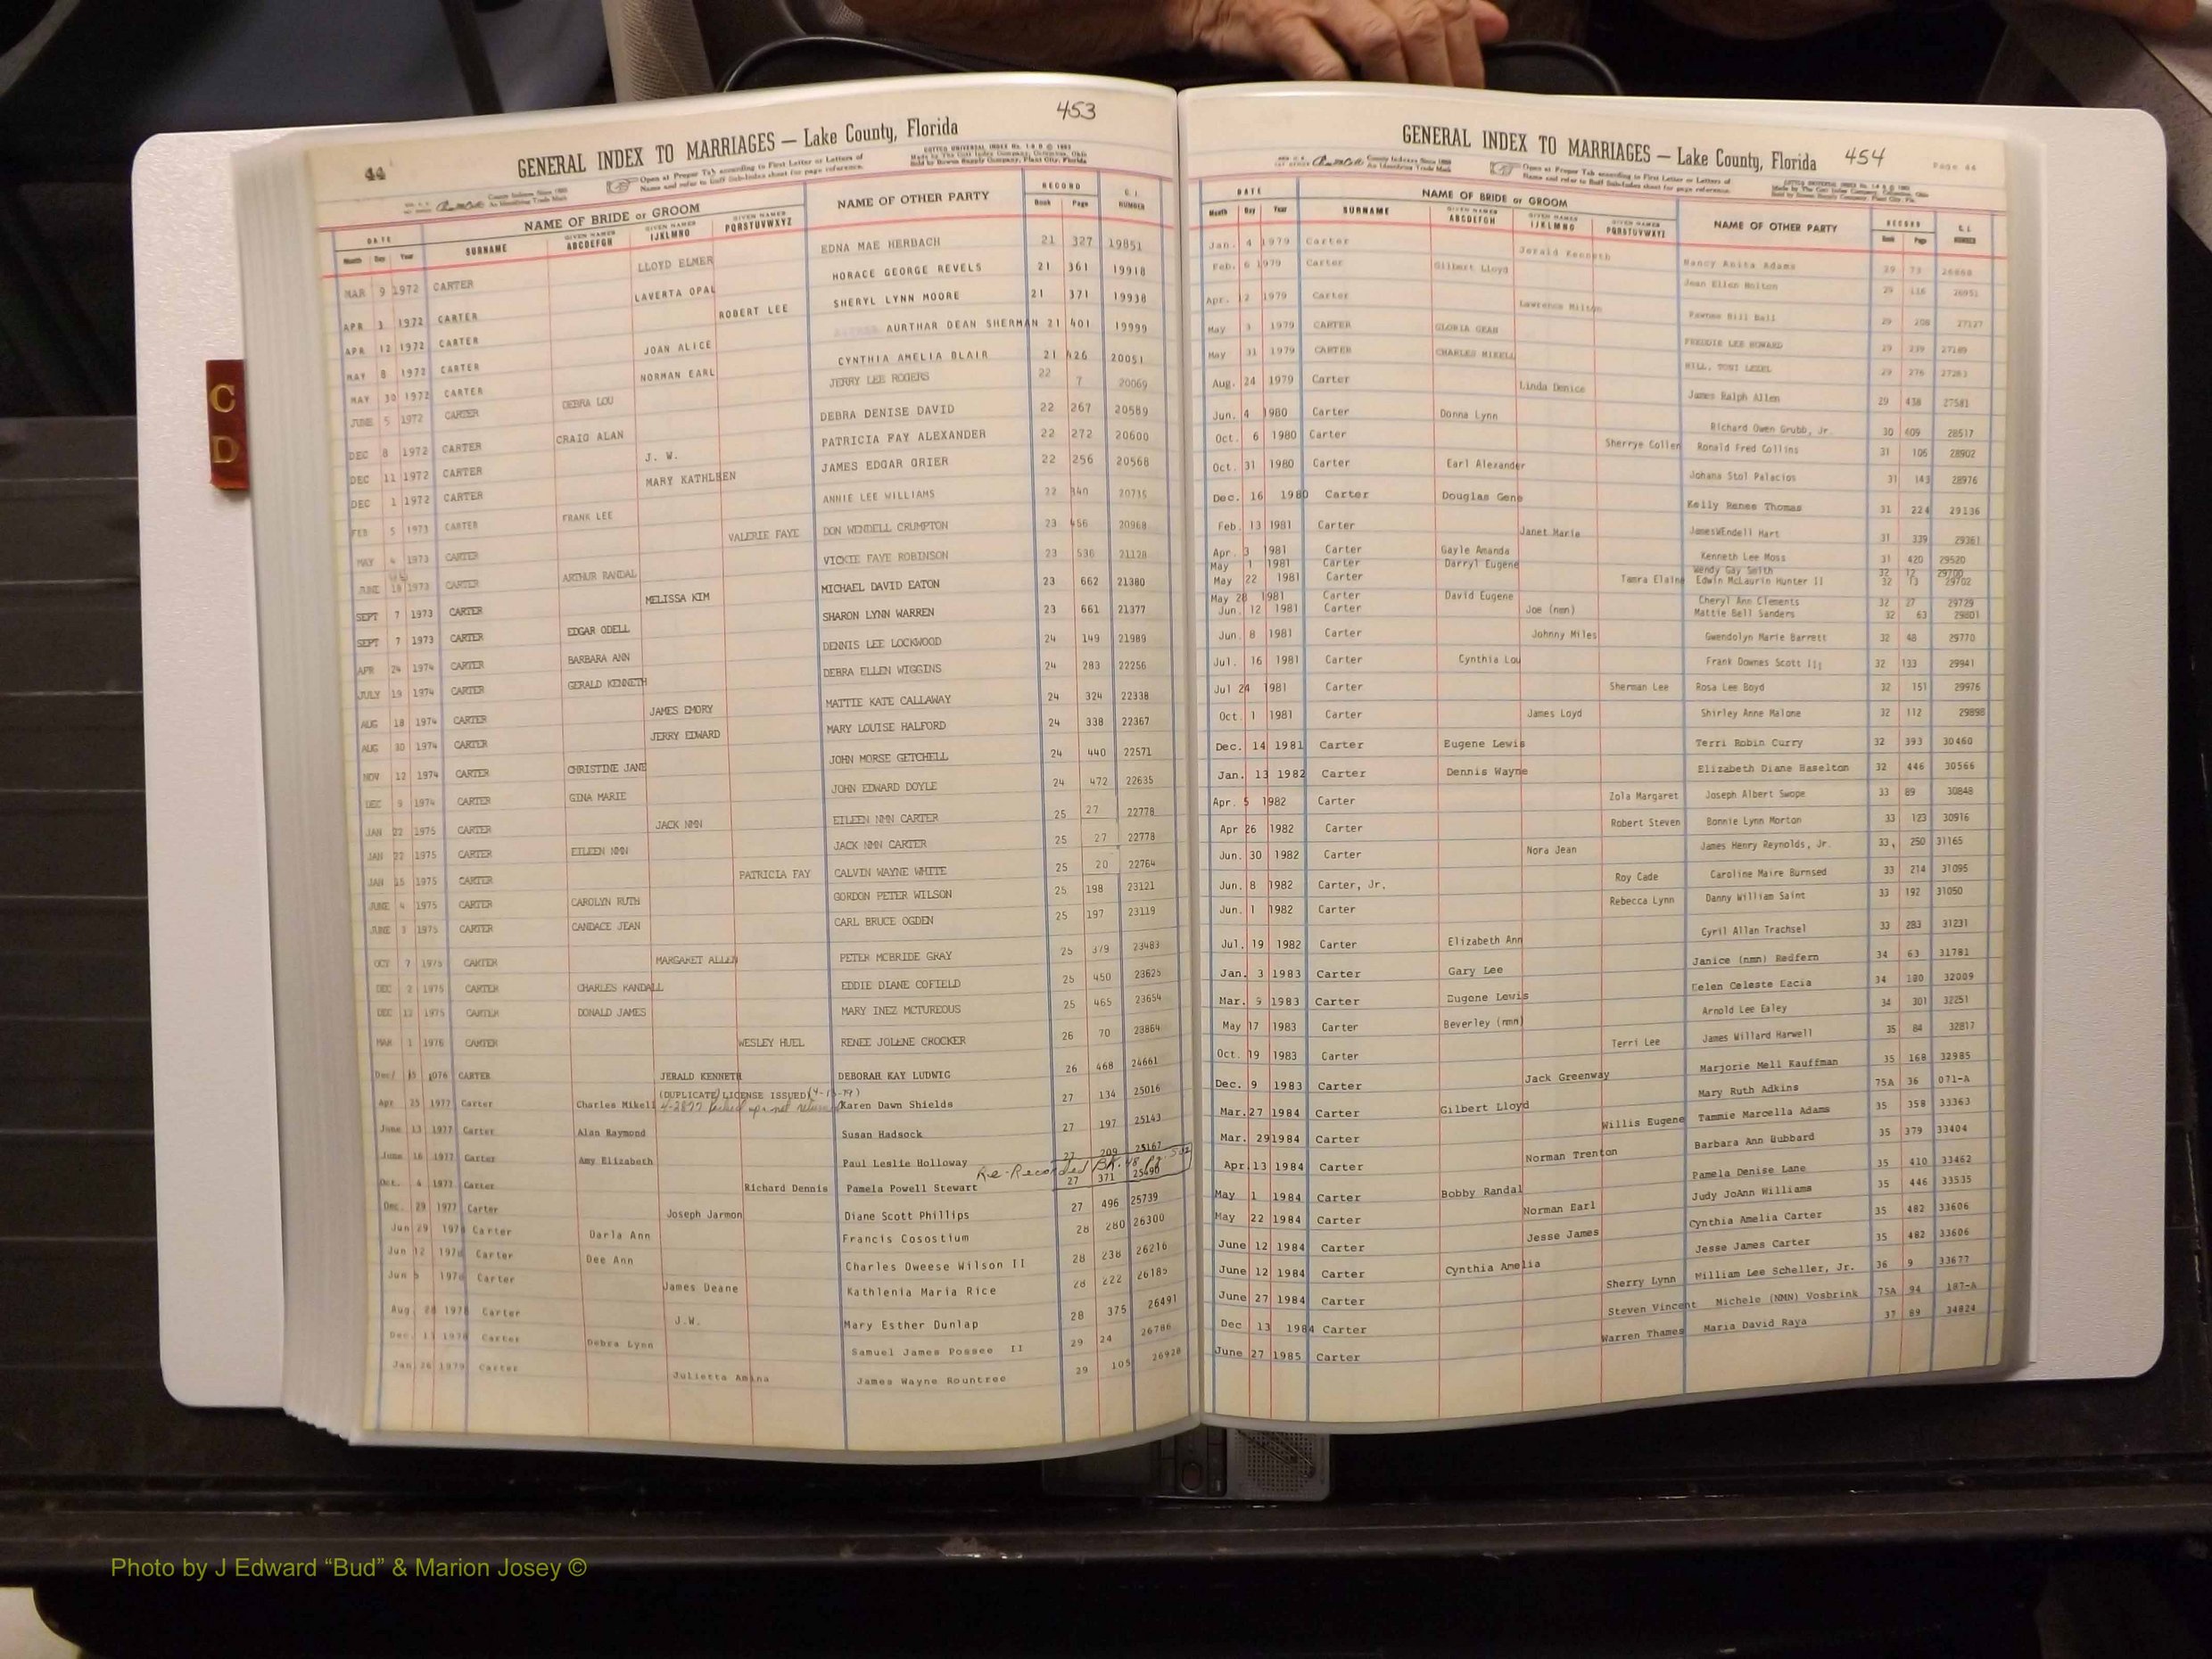 453
44
GENERAL INDEX TO MARRIAGES — Lake County, Florida
Open at Proper Tab according to First Letter or Letters of
Name and refer to Buff Sub-Index sheet for page reference.
DATE NAME OF BRIDE or GROOM NAME OF OTHER PARTY RECORD
Month Day Year SURNAME GIVEN NAMES ABCDEFGH GIVEN NAMES IJKLMNO GIVEN NAMES PQRSTUVWXYZ Book Page NUMBER
MAR 9 1972 CARTER LLOYD ELMER EDNA MAE HERBACH 21 327 19851
APR 3 1972 CARTER LAVERTA OPAL HORACE GEORGE REVELS 21 361 19918
APR 12 1972 CARTER ROBERT LEE SHERYL LYNN MOORE 21 371 19938
MAY 8 1972 CARTER JOAN ALICE AURTHAR DEAN SHERMAN 21 401 19999
MAY 30 1972 CARTER NORMAN EARL CYNTHIA AMELIA BLAIR 21 426 20051
JUNE 5 1972 CARTER DEBRA LOU JERRY LEE ROGERS 22 7 20069
DEC 8 1972 CARTER CRAIG ALAN DEBRA DENISE DAVID 22 267 20589
DEC 11 1972 CARTER J. W. PATRICIA FAY ALEXANDER 22 272 20600
DEC 1 1972 CARTER MARY KATHLEEN JAMES EDGAR GRIER 22 256 20568
FEB 5 1973 CARTER FRANK LEE ANNIE LEE WILLIAMS 22 340 20735
MAY 4 1973 CARTER VALERIE FAYE DON WENDELL CRUMPTON 23 456 20968
JUNE 18 1973 CARTER ARTHUR RANDAL VICKIE FAYE ROBINSON 23 536 21128
SEPT 7 1973 CARTER MELISSA KIM MICHAEL DAVID EATON 23 662 21380
SEPT 7 1973 CARTER EDGAR ODELL SHARON LYNN WARREN 23 661 21377
APR 24 1974 CARTER BARBARA ANN DENNIS LEE LOCKWOOD 24 149 21989
JULY 19 1974 CARTER GERALD KENNETH DEBRA ELLEN WIGGINS 24 283 22256
AUG 18 1974 CARTER JAMES EMORY MATTIE KATE CALLAWAY 24 324 22338
AUG 30 1974 CARTER JERRY EDWARD MARY LOUISE HALFORD 24 338 22367
NOV 12 1974 CARTER CHRISTINE JANE JOHN MORSE GETCHELL 24 440 22571
DEC 9 1974 CARTER GINA MARIE JOHN EDWARD DOYLE 24 472 22635
JAN 22 1975 CARTER JACK NMN EILEEN NMN CARTER 25 27 22778
JAN 22 1975 CARTER EILEEN NMN JACK NMN CARTER 25 27 22778
JAN 15 1975 CARTER PATRICIA FAY CALVIN WAYNE WHITE 25 20 22764
JUNE 4 1975 CARTER CAROLYN RUTH GORDON PETER WILSON 25 198 23121
JUNE 3 1975 CARTER CANDACE JEAN CARL BRUCE OGDEN 25 197 23119
OCT 7 1975 CARTER MARGARET ALLEN PETER MCBRIDE GRAY 25 379 23483
DEC 2 1975 CARTER CHARLES RANDALL EDDIE DIANE COFIELD 25 450 23625
DEC 12 1975 CARTER DONALD JAMES MARY INEZ MCTUREOUS 25 465 23654
MAR 1 1976 CARTER WESLEY HUEL RENEE JOLENE CROCKER 26 70 23864
Dec 1976 CARTER JERALD KENNETH DEBORAH KAY LUDWIG 26 468 24661
(DUPLICATE) LICENSE ISSUED
Apr 25 1977 Carter Charles Mikell Karen Dawn Shields 27 134 25016
June 13 1977 Carter Alan Raymond Susan Hadsock 27 197 25143
June 16 1977 Carter Amy Elizabeth Paul Leslie Holloway 27 209 25167
Re-Recorded BK. 48
Oct. 4 1977 Carter Richard Dennis Pamela Powell Stewart 27 371 25490
Dec. 29 1977 Carter Joseph Jarmon Diane Scott Phillips 27 496 25739
Jun 29 1978 Carter Darla Ann Francis Cosostium 28 280 26300
Jun 12 1978 Carter Dee Ann Charles Oweese Wilson II 28 238 26216
Jun 1978 Carter James Deane Kathlenia Maria Rice 28 222 26185
Aug 28 1978 Carter J.W. Mary Esther Dunlap 28 375 26491
Dec. 1978 Carter Debra Lynn Samuel James Possee II 29 24 26786
Jan 26 1979 Carter Julietta Amina James Wayne Rountree 29 105 26928
GENERAL INDEX TO MARRIAGES — Lake County, Florida 454
Open at Proper Tab according to First Letter or Letters of
Name and refer to Buff Sub-Index sheet for page reference.
DATE NAME OF BRIDE or GROOM NAME OF OTHER PARTY RECORD
Month Day Year SURNAME GIVEN NAMES ABCDEFGH GIVEN NAMES IJKLMNO GIVEN NAMES PQRSTUVWXYZ Book Page NUMBER
Jan. 4 1979 Carter Jerald Kenneth Nancy Anita Adams 29 73
Feb. 6 1979 Carter Gilbert Lloyd Jean Ellen Holton 29 116 26951
Apr. 12 1979 Carter Lawrence Milton Pawnee Bill Bell 29 208 27127
May 3 1979 CARTER GLORIA GEAN FREDDIE LEE HOWARD 29 239 27189
May 31 1979 CARTER CHARLES MIKELL HILL, TONI LEZEL 29 276
Aug. 24 1979 Carter Linda Denice James Ralph Allen 29 438 27581
Jun. 4 1980 Carter Donna Lynn Richard Owen Grubb, Jr. 30 609 28517
Oct. 6 1980 Carter Sherrye Collen Ronald Fred Collins 31 106 28902
Oct. 31 1980 Carter Earl Alexander Johana Stol Palacios 31 143 28976
Dec. 16 1980 Carter Douglas Gene Kelly Renee Thomas 31 224 29136
Feb. 13 1981 Carter Janet Marie JamesWEndell Hart 31 339 29361
Apr. 3 1981 Carter Gayle Amanda Kenneth Lee Moss 31 420 29520
May 1 1981 Carter Darryl Eugene Wendy Gay Smith 32 12 29700
May 22 1981 Carter Tamra Elaine Edwin McLaurin Hunter II 32 13 29702
May 28 1981 Carter David Eugene Cheryl Ann Clements 32 27 29729
Jun. 12 1981 Carter Joe (nmn) Mattie Bell Sanders 32 63 29801
Jun. 8 1981 Carter Johnny Miles Gwendolyn Marie Barrett 32 48 29770
Jul. 16 1981 Carter Cynthia Lou Frank Downes Scott III 32 133 29941
Jul 24 1981 Carter Sherman Lee Rosa Lee Boyd 32 151 29976
Oct. 1 1981 Carter James Loyd Shirley Anne Malone 32 112 29898
Dec. 14 1981 Carter Eugene Lewis Terri Robin Curry 32 393 30460
Jan. 13 1982 Carter Dennis Wayne Elizabeth Diane Haselton 32 446 30566
Apr. 5 1982 Carter Zola Margaret Joseph Albert Swope 33 89 30848
Apr 26 1982 Carter Robert Steven Bonnie Lynn Morton 33 123 30916
Jun. 30 1982 Carter Nora Jean James Henry Reynolds, Jr. 33, 250 31165
Jun. 8 1982 Carter, Jr. Roy Cade Caroline Maire Burnsed 33 214 31095
Jun. 1 1982 Carter Rebecca Lynn Danny William Saint 33 192 31050
Jul. 19 1982 Carter Elizabeth Ann Cyril Allan Trachsel 33 283 31231
Jan. 3 1983 Carter Gary Lee Janice (nmn) Redfern 34 63 31781
Mar. 5 1983 Carter Eugene Lewis Celeste 34 180 32009
May 17 1983 Carter Beverley (nmn) Arnold Lee Ealey 34 301 32251
Oct. 19 1983 Carter Terri Lee James Willard Harwell 35 84 32817
Dec. 9 1983 Carter Jack Greenway Marjorie Mell Kauffman 35 168 32985
Mar. 27 1984 Carter Gilbert Lloyd Mary Ruth Adkins 75A 36 071-A
Mar. 29 1984 Carter Willis Eugene Tammie Marcella Adams 35 358 33363
Apr. 13 1984 Carter Norman Trenton Barbara Ann Hubbard 35 379 33404
May 1 1984 Carter Bobby Randal Pamela Denise Lane 35 410 33462
May 22 1984 Carter Norman Earl Judy JoAnn Williams 35 446 33535
June 12 1984 Carter Jesse James Cynthia Amelia Carter 35 482 33606
June 12 1984 Carter Cynthia Amelia Jesse James Carter 35 482 33606
June 27 1984 Carter Sherry Lynn William Lee Scheller, Jr. 36 9 33677
Dec 13 1984 Carter Steven Vincent Michele (NMN) Vosbrink 75A 94 187-A
June 27 1985 Carter Warren Thames Maria David Raya 37 89 34824
C
D
Photo by J Edward “Bud” & Marion Josey ©